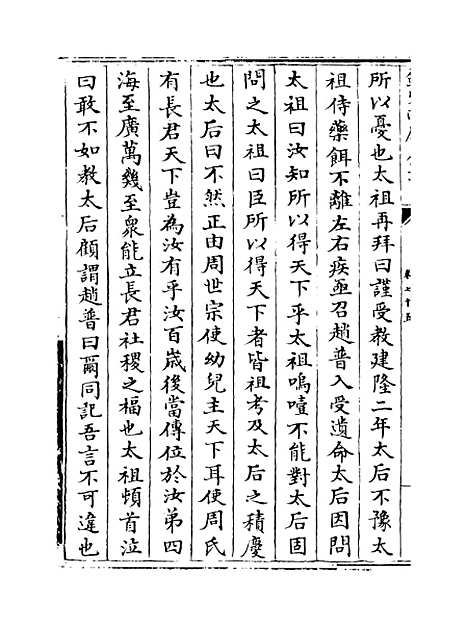 所以憂也太祖再拜曰謹受教建隆二年太后不豫太
祖侍藥餌不離左右疾亟召趙普入受遺命太后因問
太祖曰汝知所以得天下乎太祖嗚噎不能對太后固
問之太祖曰臣所以得天下者皆祖考及太后之積慶
也太后曰不然正由周世宗使幼兒主天下耳使周氏
有長君天下豈為汝有乎汝百歲後當傳位於汝弟四
海至廣萬幾至衆能立長君社稷之福也太祖頓首泣
曰敢不如教太后顧謂趙普曰爾同記吾言不可違也